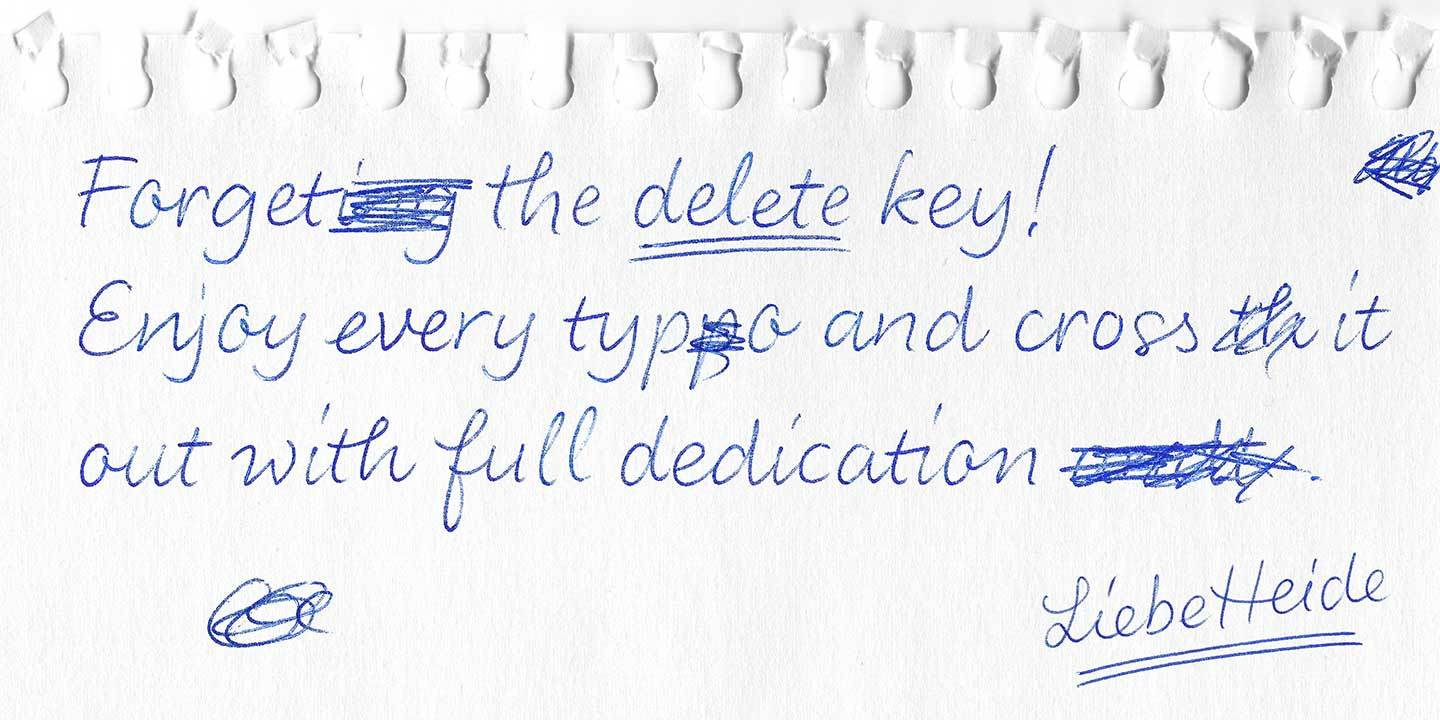 Forget the delete key!
Enjoy every typo and cross it
out with full dedication .
LiebeHeide